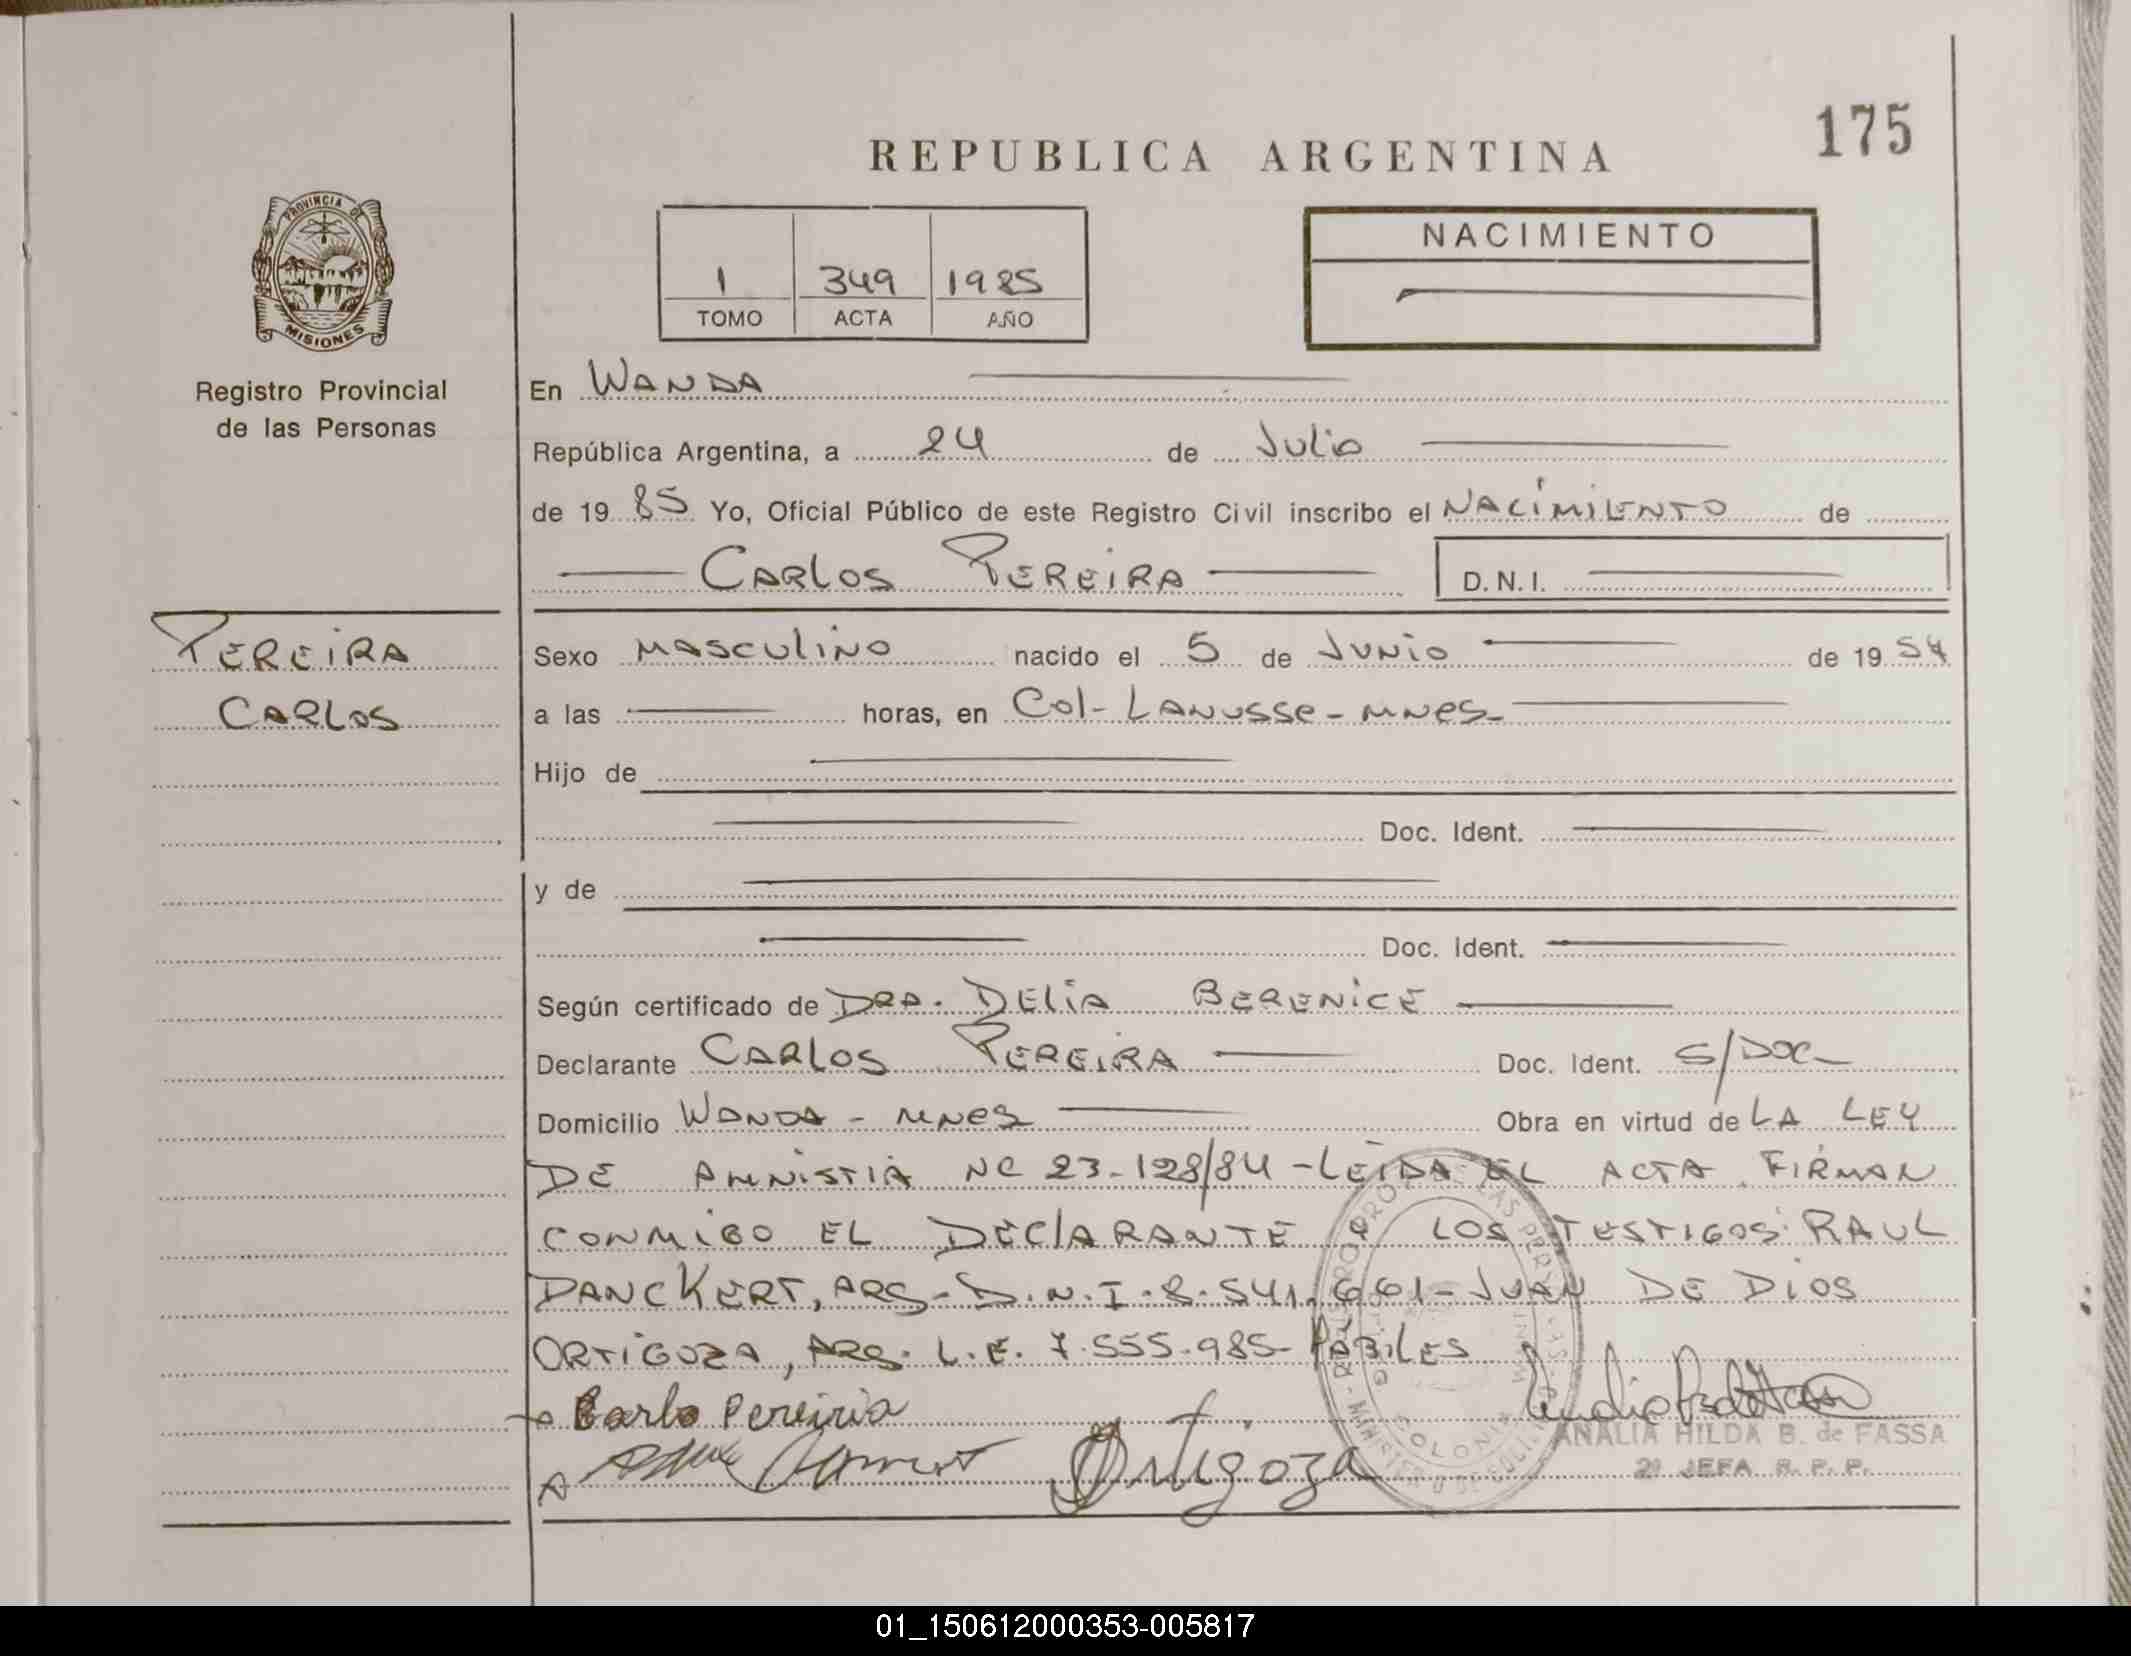 175
REPUBLICA ARGENTINA
PROVINCIA DE
MISIONES
Registro Provincial
de las Personas
1 349 1985
TOMO ACTA AÑO
NACIMIENTO
En WANDA
República Argentina, a 24 de Julio
de 19 85 Yo, Oficial Público de este Registro Civil inscribo el NACIMIENTO de
CARLOS PEREIRA D.N.I.
PEREIRA
CARLOS
Sexo MASCULINO nacido el 5 de JUNIO de 19 54
a las horas, en Col- LANUSSE - MNES-
Hijo de
Doc. Ident.
y de
Doc. Ident.
Según certificado de DRA. DELIA BERENICE
Declarante CARLOS PEREIRA Doc. Ident. S/DOC-
Domicilio WANDA - MNES Obra en virtud de LA LEY
DE AMNISTIA NC 23-128/84 - LEIDA EL ACTA FIRMAN
CONMIGO EL DECLARANTE Y LOS TESTIGOS: RAUL
DANCKERT, ARG- D.N.I. 8.541.661- JUAN DE DIOS
ORTIGOZA, ARG. L.E. 7.555.985- HÁBILES
Carlo Pereiria
Ortigoza
ANALIA HILDA B. de FASSA
2ª JEFA R. P. P.
01_150612000353-005817